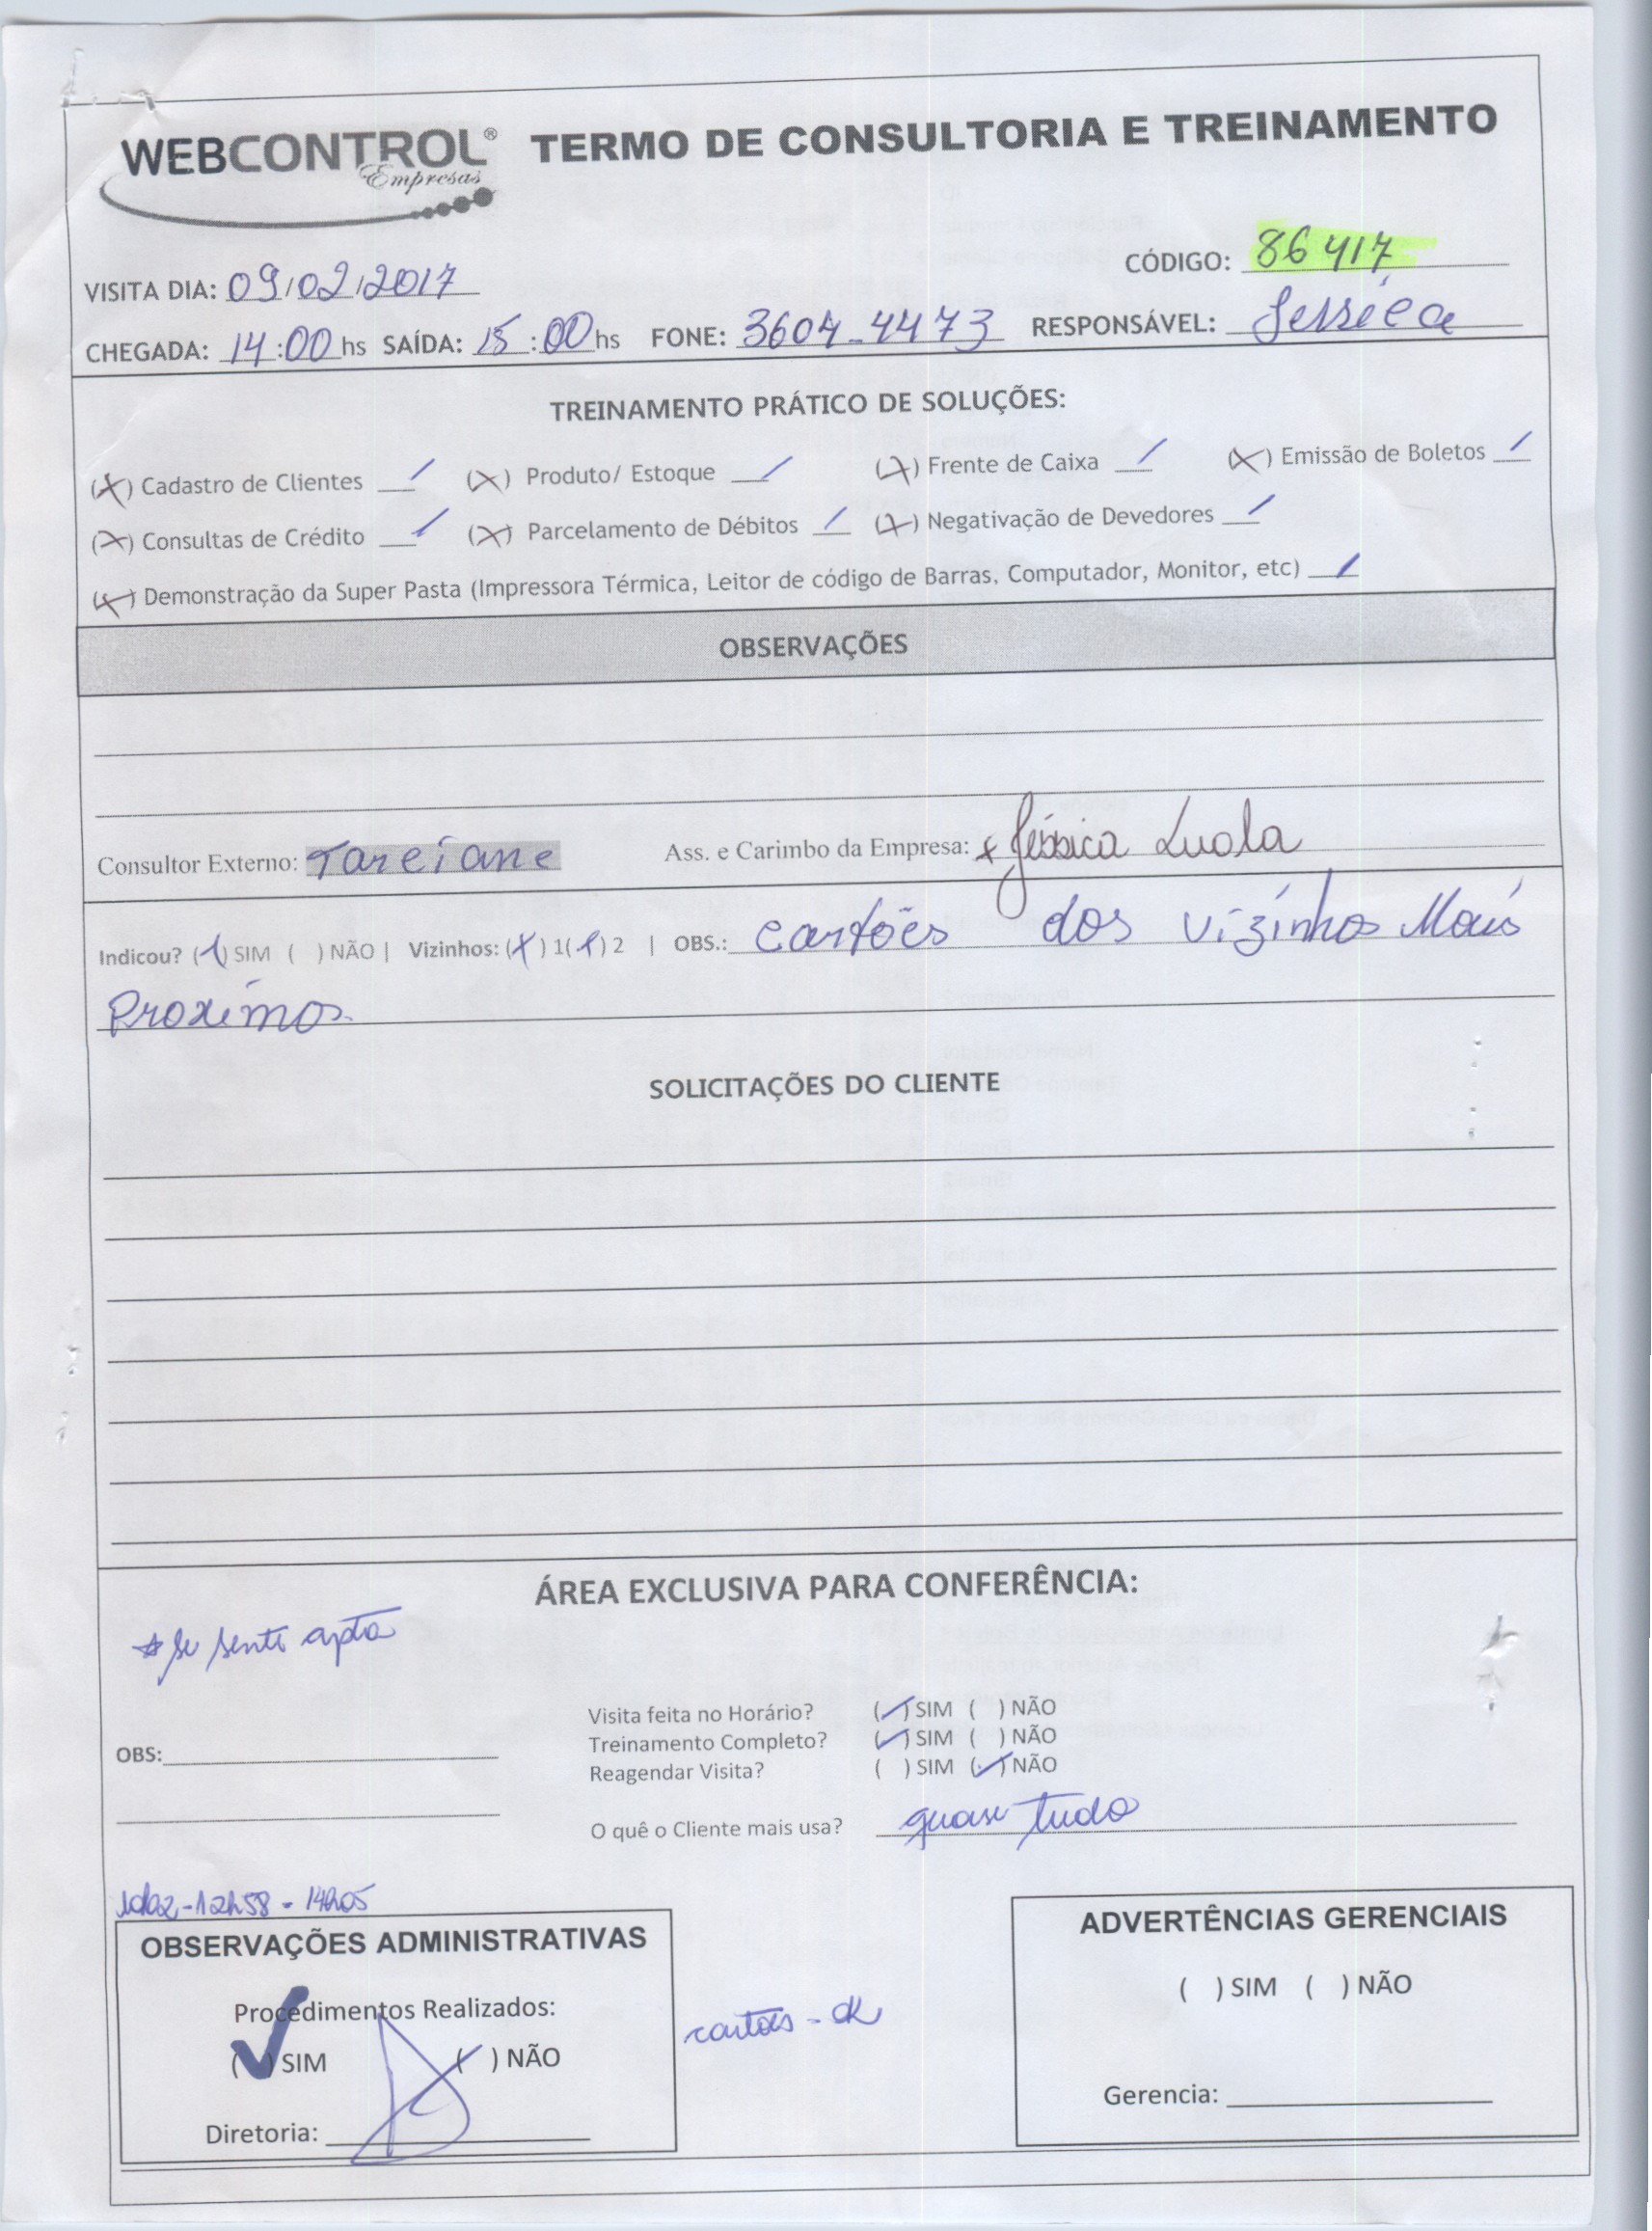 WEBCONTROL® Empresas TERMO DE CONSULTORIA E TREINAMENTO
CÓDIGO: 86417
VISITA DIA: 09/02/2017
CHEGADA: 14:00 hs SAÍDA: 15:00 hs FONE: 3604-4473 RESPONSÁVEL: Jessica
TREINAMENTO PRÁTICO DE SOLUÇÕES:
(X) Cadastro de Clientes / (X) Produto/ Estoque / (X) Frente de Caixa / (X) Emissão de Boletos /
(X) Consultas de Crédito / (X) Parcelamento de Débitos / (X) Negativação de Devedores /
(X) Demonstração da Super Pasta (Impressora Térmica, Leitor de código de Barras, Computador, Monitor, etc) /
OBSERVAÇÕES
Consultor Externo: Tareiane Ass. e Carimbo da Empresa: x Jéssica Luola
Indicou? (X) SIM ( ) NÃO | Vizinhos: (X) 1 (X) 2 | OBS.: cartões dos vizinhos Mais
Proximos.
SOLICITAÇÕES DO CLIENTE
ÁREA EXCLUSIVA PARA CONFERÊNCIA:
* se sente apta
Visita feita no Horário? (✓) SIM ( ) NÃO
Treinamento Completo? (✓) SIM ( ) NÃO
OBS:
Reagendar Visita? ( ) SIM (✓) NÃO
O quê o Cliente mais usa? quase tudo
10/02-12h58 - 14h05
OBSERVAÇÕES ADMINISTRATIVAS
Procedimentos Realizados:
(✓) SIM ( ) NÃO
Diretoria:
cartões - ok
ADVERTÊNCIAS GERENCIAIS
( ) SIM ( ) NÃO
Gerencia: